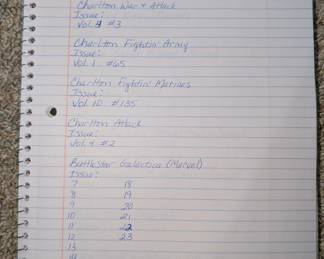 Charlton War & Attack
Issue:
Vol. #3
Charlton Fightin' Army
Issue:
Vol. 1 #65
Charlton Fightin' Marines
Issue:
Vol. 10 #135
Charlton Attack
Issue:
Vol. 4 #2
Battlestar Galactica (Marvel)
Issue:
7 18
8 19
9 20
10 21
11 22
12 23
13
14